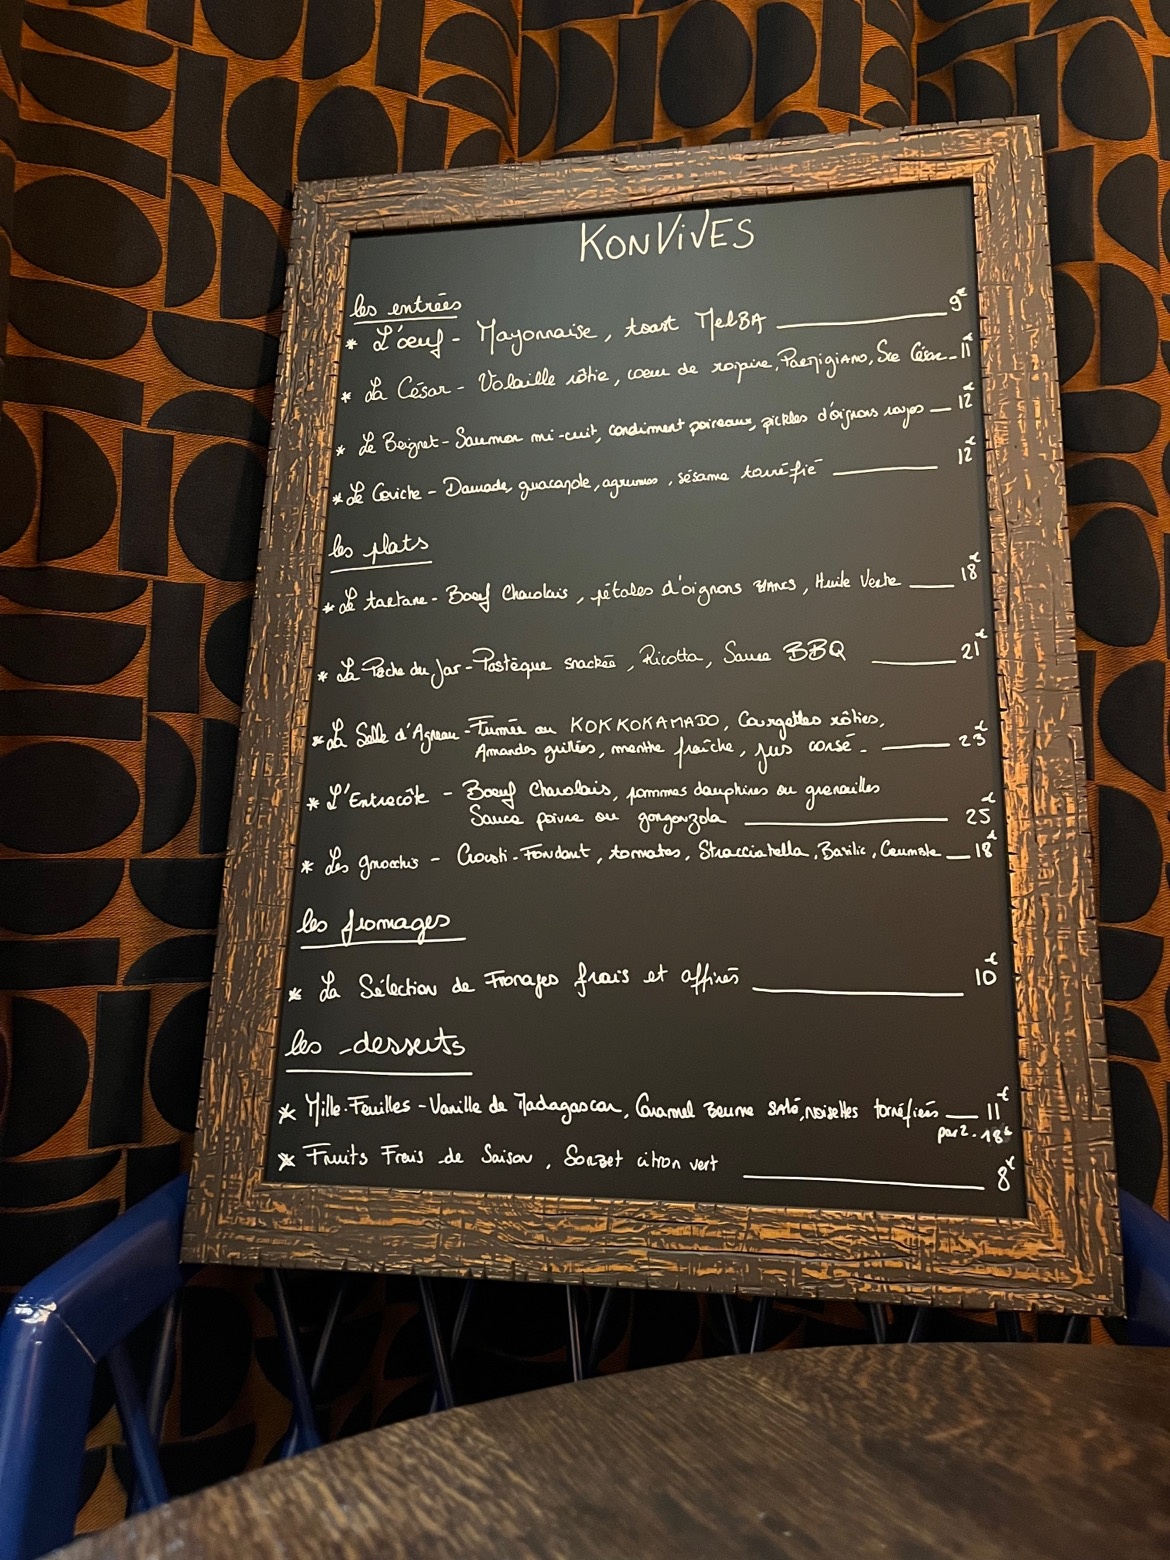 KONViVES
les entrées
* L'œuf - Mayonnaise, toast MelBA 9€
* La César - Volaille rôtie, cœur de romaine, Parmigiano, Sce César 11€
* Le Beignet - Saumon mi-cuit, condiment poireaux, pickles d'oignons rouges 12€
* Le Ceviche - Daurade, guacamole, agrumes, sésame torréfié 12€
les plats
* Le tartare - Boeuf Charolais, pétales d'oignons BLANCS, Huile Verte 18€
* La Pêche du Jar - Pastèque snackée, Ricotta, Sauce BBQ 21€
* La Selle d'Agneau - Fumée au KOKKOKAMADO, Courgettes rôties,
Amandes grillées, menthe fraîche, jus corsé. 23€
* L'Entrecôte - Boeuf Charolais, pommes dauphines ou grenailles
Sauce poivre ou gorgonzola 25€
* Les gnocchis - Crousti-Fondant, tomates, Stracciatella, Basilic, Crumble 18€
les fromages
* La Sélection de Fromages frais et affinés 10€
les desserts
* Mille-Feuilles - Vanille de Madagascar, Caramel Beurre salé, noisettes torréfiées 11€
par 2 - 18€
* Fruits Frais de Saison, Sorbet citron vert 8€